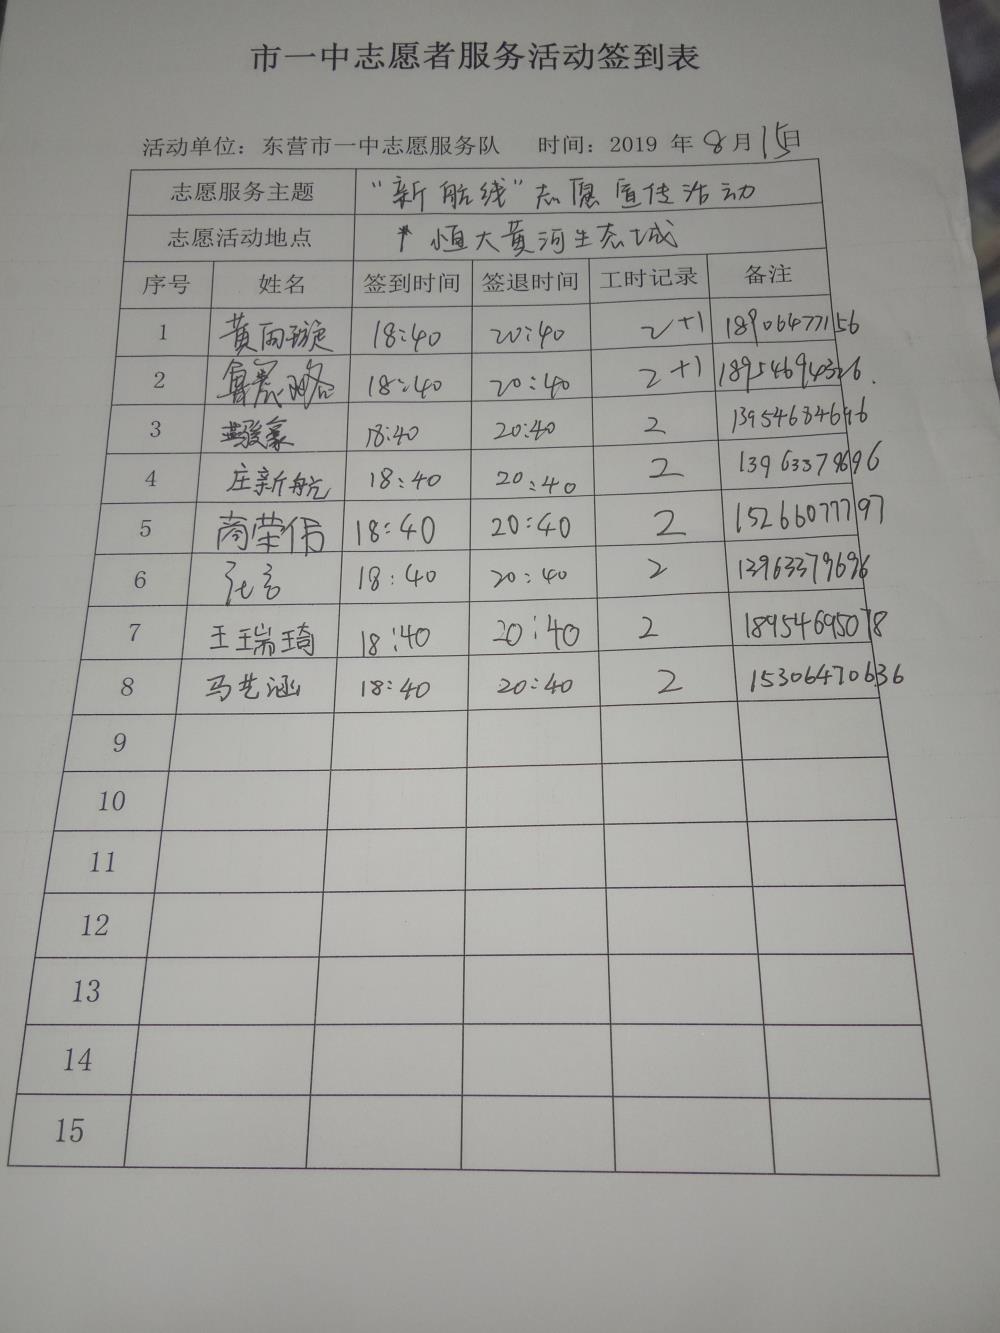 市一中志愿者服务活动签到表
活动单位：东营市一中志愿服务队 时间：2019 年 8 月 15 日
志愿服务主题 “新航线”志愿宣传活动
志愿活动地点 恒大黄河生态城
序号 姓名 签到时间 签退时间 工时记录 备注
1 黄雨璇 18:40 20:40 2+1 18906477156
2 18:40 20:40 2+1 18954694326.
3 18:40 20:40 2 13954684696
4 庄新航 18:40 20:40 2 13963379696
5 商荣伟 18:40 20:40 2 15266077797
6 张言 18:40 20:40 2 13963379696
7 王瑞琦 18:40 20:40 2 18954695078
8 马艺涵 18:40 20:40 2 15306470636
9
10
11
12
13
14
15